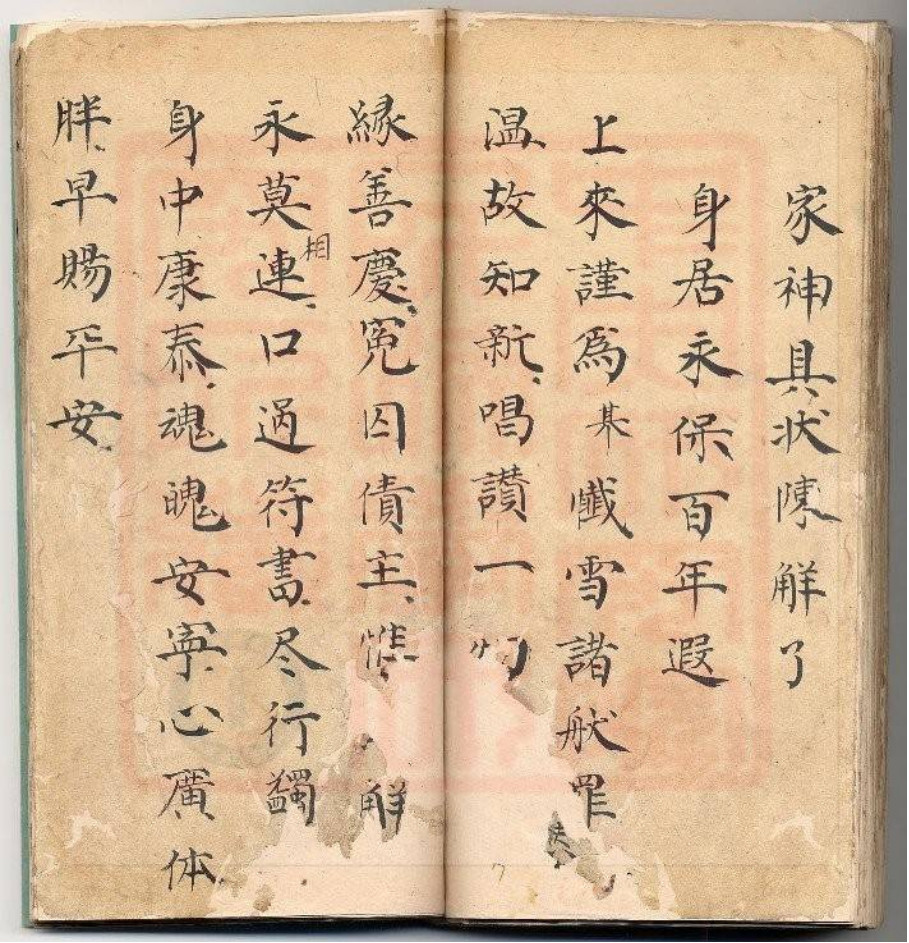 家神具状陳解了
身居永保百年遐
上來謹爲某懴雪諸般罪
温故知新、唱讃一
縁善慶、冤囚債主、解
永莫相連、口過符書、尽行蠲
身中康泰、魂魄安寧、心廣体
胖、早賜平安